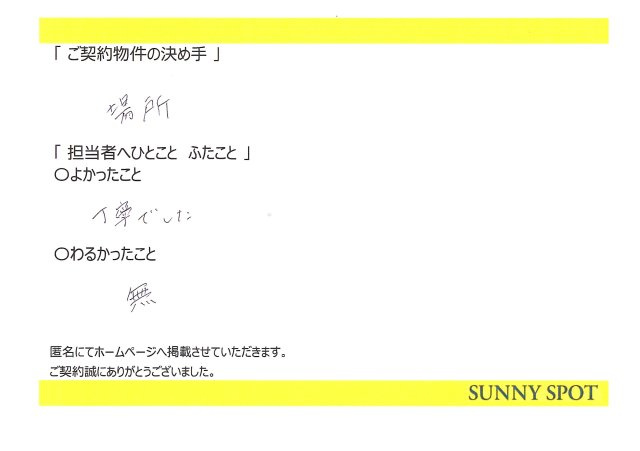 「 ご契約物件の決め手 」
場所
「 担当者へひとこと ふたこと 」
〇よかったこと
丁寧でした
〇わるかったこと
無
匿名にてホームページへ掲載させていただきます。
ご契約誠にありがとうございました。
SUNNY SPOT